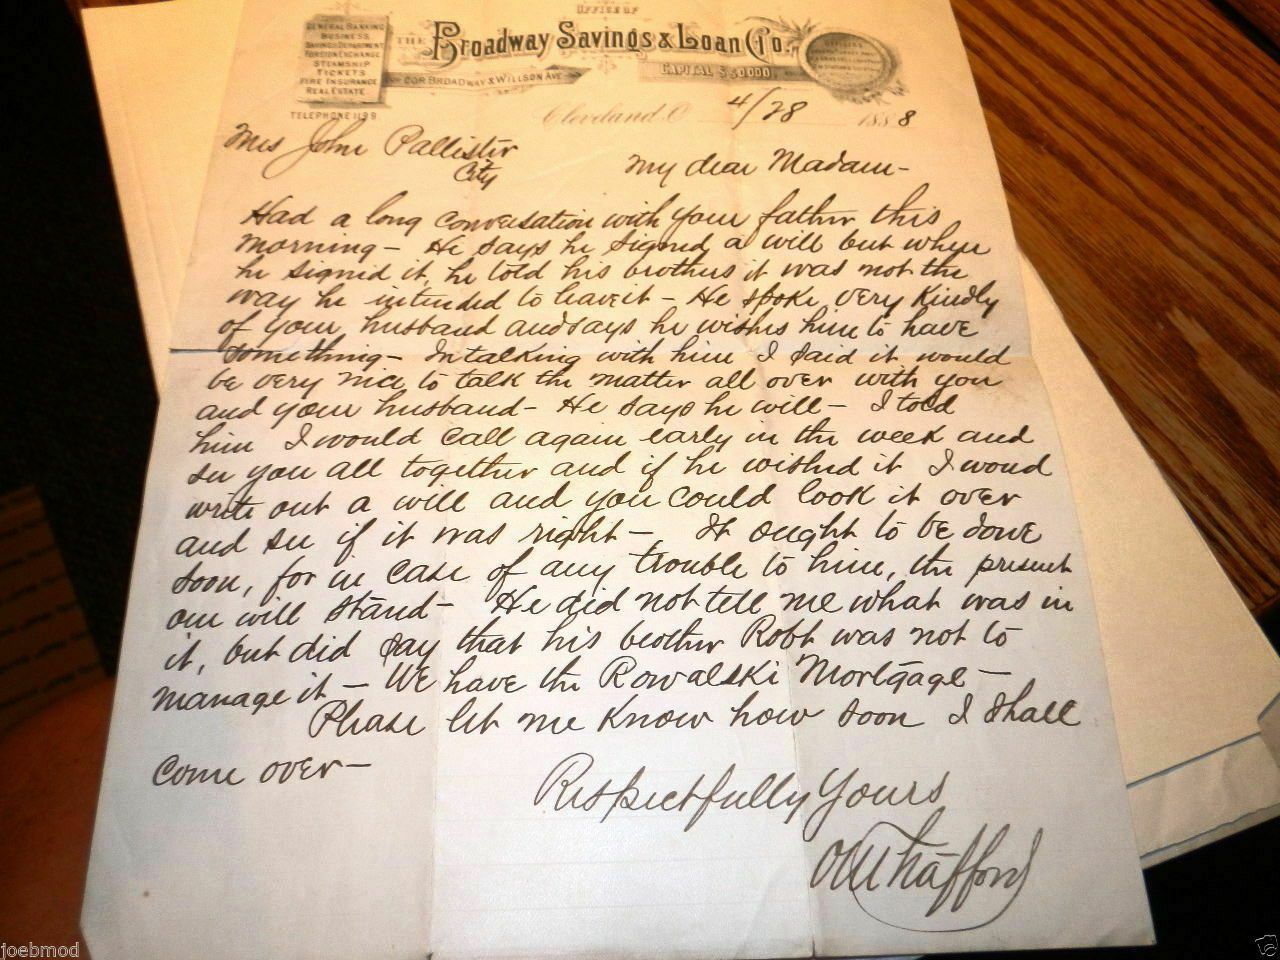 OFFICE OF
THE Broadway Savings & Loan Co.,
GENERAL BANKING
BUSINESS
SAVINGS DEPARTMENT
FOREIGN EXCHANGE
STEAMSHIP
TICKETS
FIRE INSURANCE
REAL ESTATE
TELEPHONE 1199
COR BROADWAY & WILLSON AVE
CAPITAL $50000
OFFICERS
Cleveland, O. 4/28 1888
Mrs John Pallister
City
My dear Madam-
Had a long conversation with your father this
morning - He says he signed a will but when
he signed it, he told his brothers it was not the
way he intended to leave it - He spoke very kindly
of your husband and says he wishes him to have
something - In talking with him I said it would
be very nice to talk the matter all over with you
and your husband - He says he will - I told
him I would call again early in the week and
see you all together and if he wished it I woud
write out a will and you could look it over
and see if it was right - It ought to be done
soon, for in case of any trouble to him, the present
one will stand - He did not tell me what was in
it, but did say that his brother Robt was not to
manage it - We have the Kowalski Mortgage -
Please let me know how soon I shall
come over -
Respectfully Yours
Stafford
joebmod